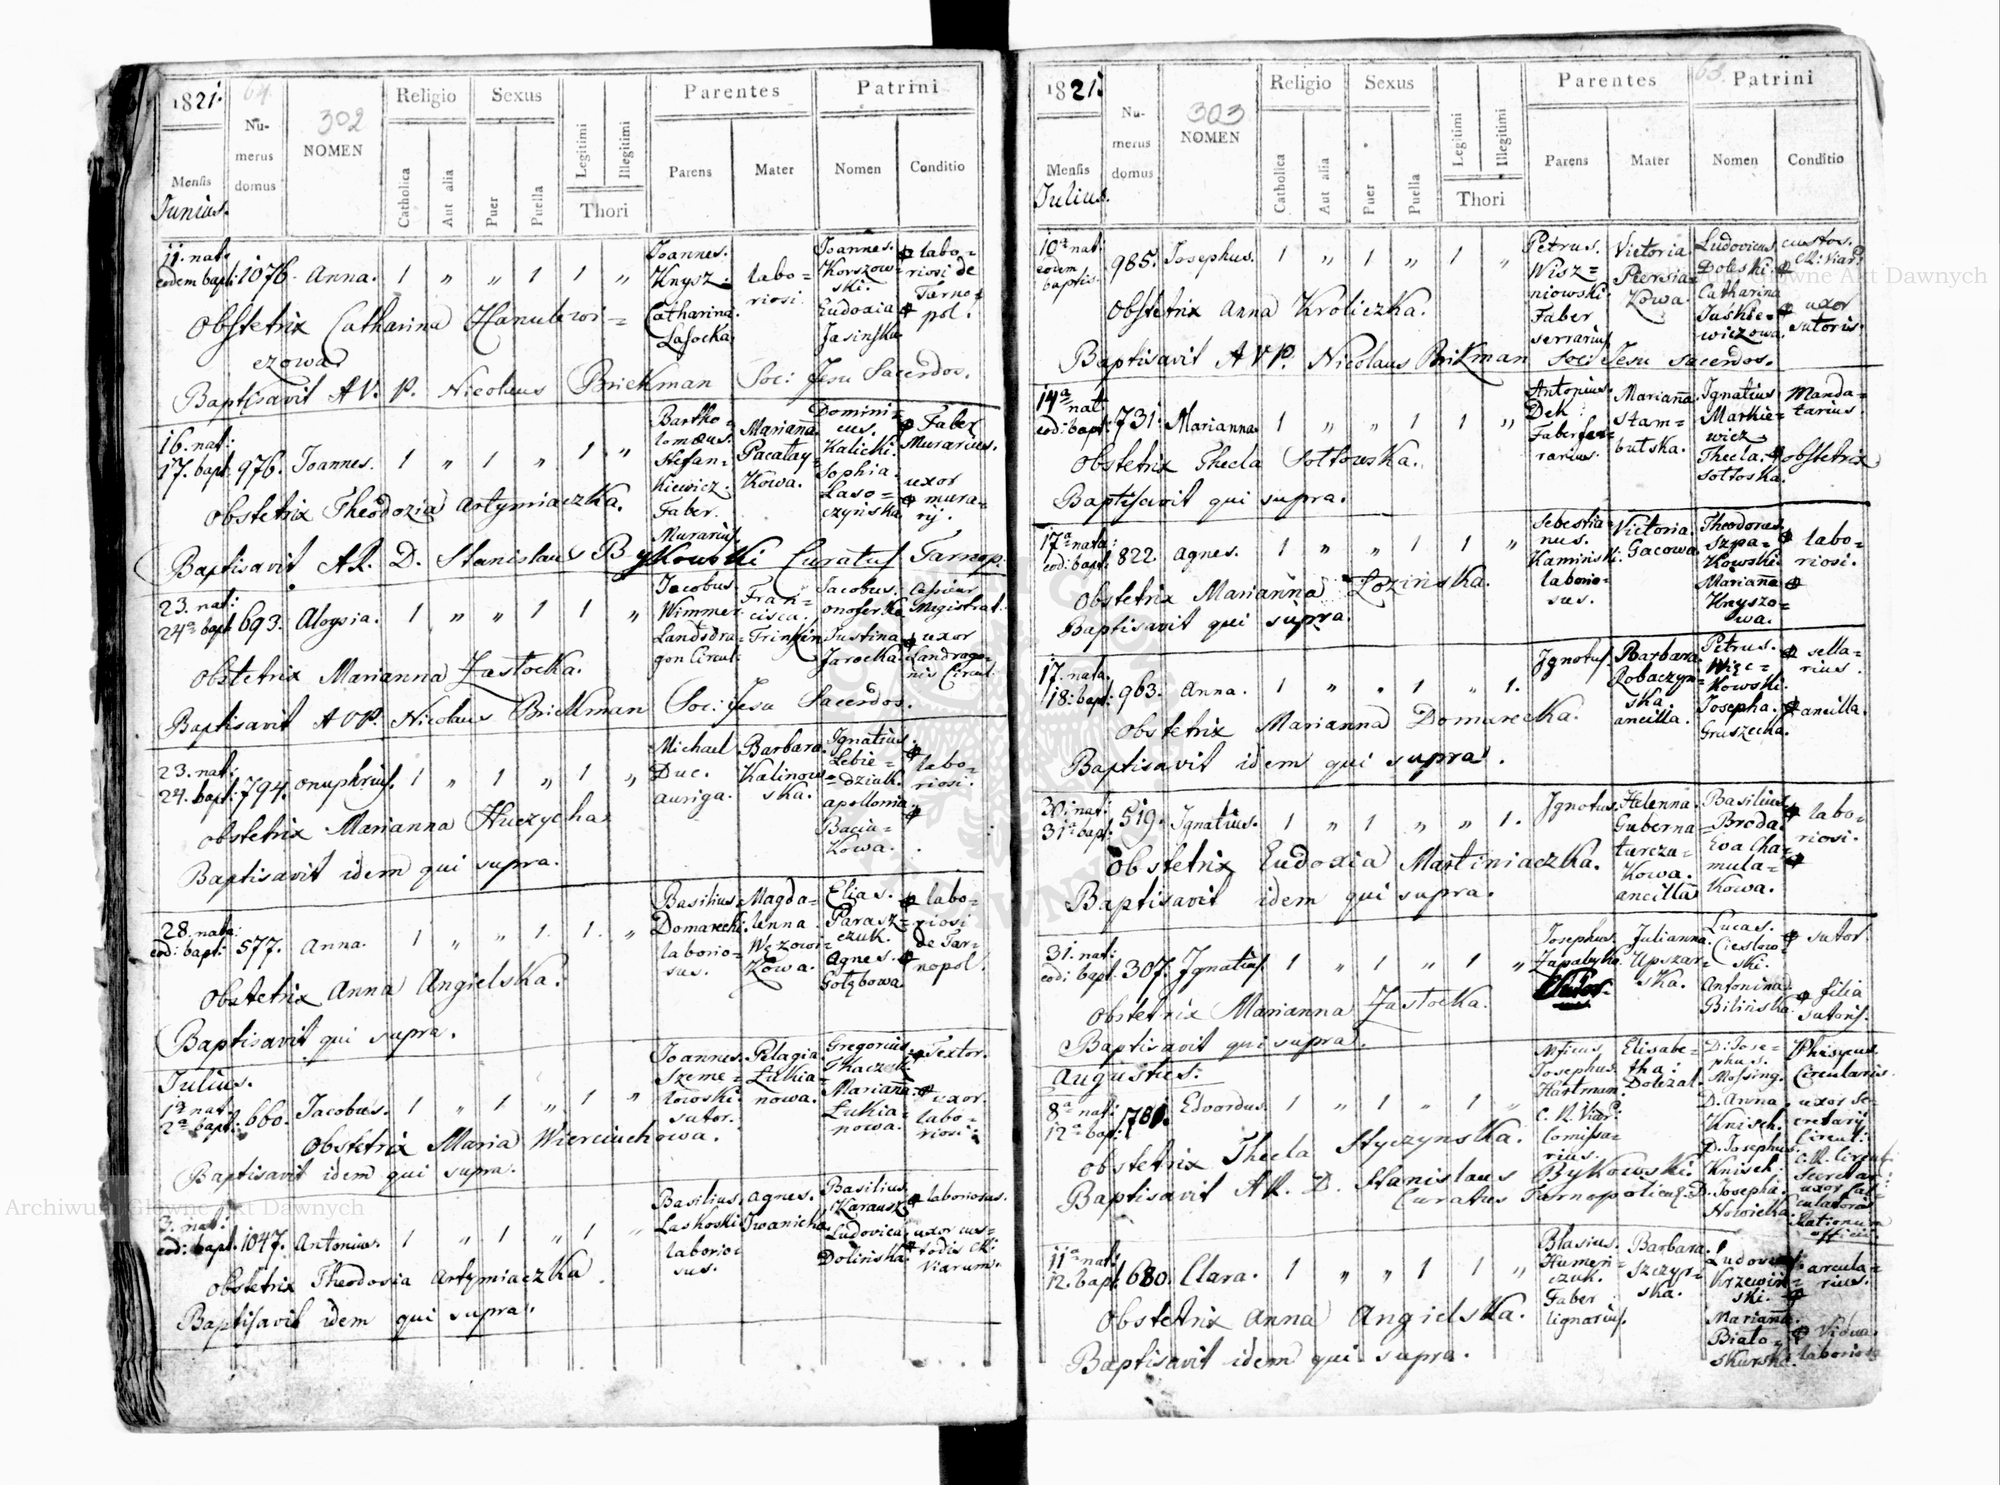 1821.
64
Numerus domus
302
NOMEN
Religio
Sexus
Parentes
Patrini
Mensis
Catholica
Aut alia
Puer
Puella
Legitimi
Illegitimi
Thori
Parens
Mater
Nomen
Conditio
Junius.
11. nat:
eodem bapt:
1076. Anna. 1 " " 1 1 "
Joannes. Knysz. Catharina. Lasocka
labo= riosi
Joannes. Korszow= ski. Eudoxia Jasinska
labo= riosi de Tarno= pol.
Obstetrix Catharina Hanulewi=
czowa
Baptisavit A. V. P. Nicolaus Brickman Soc: Jesu Sacerdos.
16. nat:
17. bapt.
976. Joannes. 1 " 1 " 1 "
Bartho= lomæus. Stefan= kiewicz. Faber. Murarius.
Marianna. Pacalay= kowa.
Domini= cus. Kalicki. Sophia. Laso= czyńska
Faber Murarius. uxor mura= rij.
Obstetrix Theodozia Artymiaczka.
Baptisavit A.R. D. Stanislaus Bykowski Curatus Tarnop.
23. nat:
24ª bapt
693. Aloysia. 1 " " 1 1 "
Jacobus. Wimmer Landsdra= gon Circul.
Fran= cisca. Trinkin
Jacobus. onoferko Justina Jarocka.
Cassier Magistrat. uxor Landrago= nis Circul.
Obstetrix Marianna Zastocka.
Baptisavit A V P. Nicolaus Brickman Soc: Jesu Sacerdos.
23. nat:
24. bapt:
794. Onuphrius. 1 " 1 " 1 "
Michael Duc. auriga.
Barbara. Kalinow= ska.
Ignatius. Lebie= dziuk. apollonia Baciu= kowa.
labo= riosi.
Obstetrix Marianna Huczycha
Baptisavit idem qui supra.
28. nata:
eod: bapt:
577. Anna. 1 " " 1. 1. "
Basilius Domarecki. laborio= sus.
Magda= lenna Węzowi= kowa.
Elias. Parasz= czuk. Agnes. Gołębowa
labo= riosi de Tar= nopol.
Obstetrix Anna Angielska.
Baptisavit qui supra.
Julius.
1ª nat:
2ª bapt:
660. Jacobus. 1 " 1 " 1 "
Joannes. Szeme= towski. sutor.
Pelagia Łukia= nowa.
Gregorius Tkaczeck. Marianna. Łukia= nowa.
Textor. uxor labo= riosi.
Obstetrix Maria Wierciuchowa.
Baptisavit idem qui supra.
3. nat:
eod: bapt.
1047. Antonius. 1 " 1 " 1 "
Basilius Laskoski laborio= sus.
Agnes. Iwanicka
Basilius. Karausz Ludovica Dolińska
laboriosus. uxor cus= todis CR: Viarum.
Obstetrix Theodosia Artymiaczka.
Baptisavit idem qui supra.
1821.
63.
Numerus domus
303
NOMEN
Religio
Sexus
Parentes
Patrini
Mensis
Catholica
Aut alia
Puer
Puella
Legitimi
Illegitimi
Thori
Parens
Mater
Nomen
Conditio
Julius.
10ª nat:
eodem
baptis.
985. Josephus. 1 " 1 " 1 "
Petrus. Wisz= niowski. Faber serrarius
Victoria Piersia= kowa.
Ludovicus Doleski. Catharina Jaskie= wiczowa.
custos. CR: Viar: uxor sutoris.
Obstetrix Anna Kroliczka.
Baptisavit A V P. Nicolaus Brikman Soci: Jesu Sacerdos.
14ª nat
eod: bapt:
731. Marianna. 1 " " 1 1 "
Antonius. Deh Faber fer= rarius.
Marianna. Stam= bulska.
Ignatius Markie= wicz Thecla. Sołtoska.
Manda= tarius. obstetrix
Obstetrix Thecla Sołtowska.
Baptisavit qui supra.
17ª nata:
eod: bapt.
822. Agnes. 1 " " 1 1 "
Sebestia= nus. Kaminski. laborio= sus.
Victoria. Gacowa
Theodorus. Szpa= kowski. Marianna Knyszo= wa.
labo= riosi.
Obstetrix Marianna Łozińska.
Baptisavit qui supra.
17. nata.
18. bapt:
963. Anna. 1 " " 1 " 1.
Ignotus
Barbara. Robaczyn= ska. ancilla.
Petrus. Więc= kowski. Josepha. Gruszecka.
sella= rius. ancilla.
Obstetrix Marianna Domarecka.
Baptisavit idem qui supra.
30. nat:
31ª bapt:
519. Ignatius. 1 " 1 " " 1.
Ignotus.
Helenna. Guberna= turcza= kowa. ancilla
Basilius Broda. Eva Cha= mula= kowa.
labo= riosi.
Obstetrix Eudoxia Martiniaczka.
Baptisavit idem qui supra.
31. nat:
eod: bapt.
307. Ignatius. 1 " 1 " 1 "
Josephus. Zapalyka.
Julianna. Upszar= ska.
Lucas. Cieslow= ski. Antonina. Bilińska
sutor. filia sutoris.
Obstetrix Marianna Zastocka.
Baptisavit qui supra.
Augustus.
8ª nat:
12ª bapt:
781. Edvardus. 1 " 1 " 1 "
Josephus. Hartman. C. R. Viar: Comissa= rius.
Elisabe= tha: Dolezal.
D: Jose= phus. Mossing. D. Anna Knisch. D. Josephus Knisch. D. Josepha. Nowicka.
Phisycus. Circularis. uxor Se= cretarij Circul: C. R. Circul: Secretar. uxor Cal= culatoris Rationum officii.
Obstetrix Thecla Styczynska.
Baptisavit A R. D. Stanislaus Bykowski.
Curatus Tarnopoliens.
11ª nat:
12. bapt.
680. Clara. 1 " " 1 1 "
Blasius. Humen= czuk. Faber lignarius.
Barbara. Szczyr= ska.
Ludovicus Krzewiń= ski. Marianna. Biało= skurska.
arcula= rius. Vidua. laboriosa
Obstetrix Anna Angielska.
Baptisavit idem qui supra.
Archiwum Główne Akt Dawnych